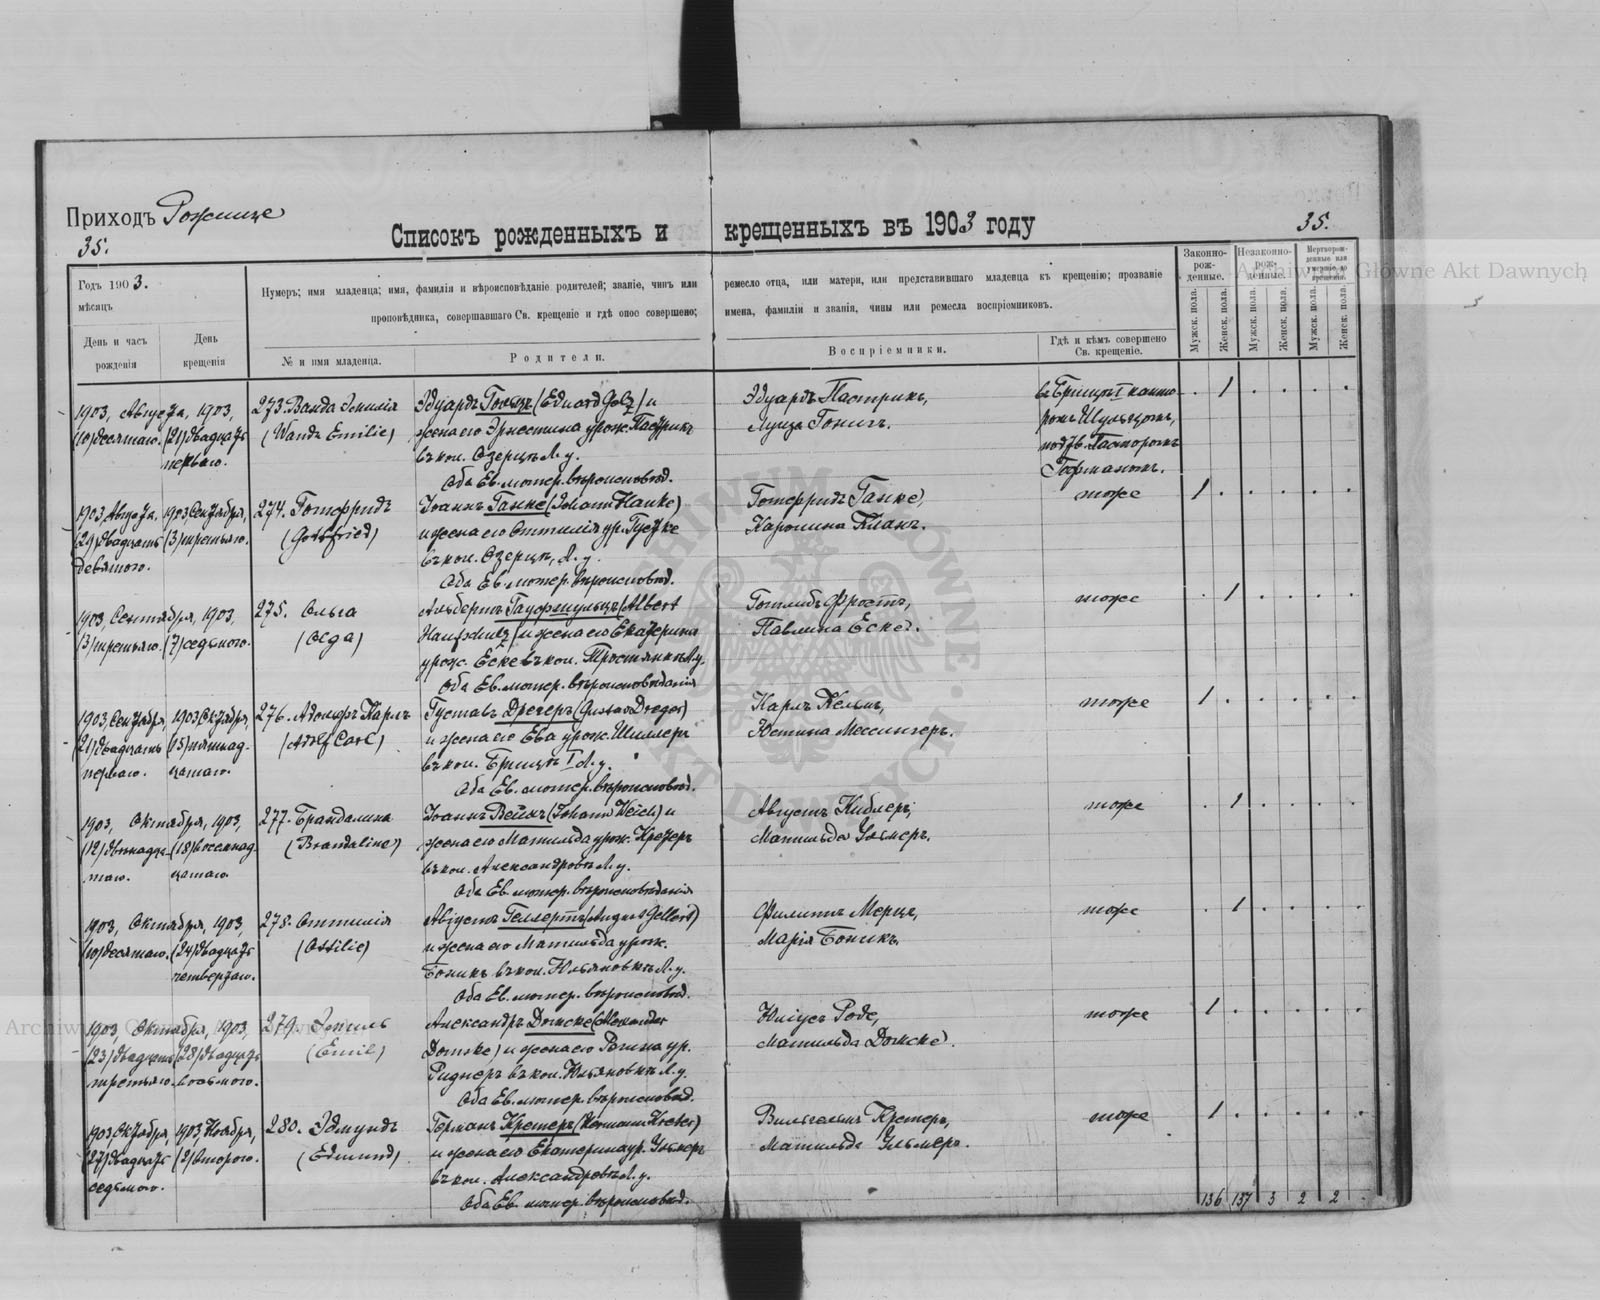 Приходъ Рожище
35.
Списокъ рожденныхъ и крещенныхъ въ 1903 году
35.
Годъ 1903.
мѣсяцъ
День и часъ рожденія
День крещенія
Нумеръ; имя младенца; имя, фамилія и вѣроисповѣданіе родителей; званіе, чинъ или ремесло отца, или матери, или представившаго младенца къ крещенію; прозваніе
проповѣдника, совершавшаго Св. крещеніе и гдѣ оное совершено; имена, фамиліи и званія, чины или ремесла воспріемниковъ.
№ и имя младенца.
Родители.
Воспріемники.
Гдѣ и кѣмъ совершено Св. крещеніе.
Законно-рож-денные.
Незаконно-рож-денные.
Мужск. пола.
Женск. пола.
Мужск. пола.
Женск. пола.
Мужск. пола.
Женск. пола.
Archiwum Główne Akt Dawnych
1903, Августа, 1903,
(10) десятаго. (21) двадцать
перваго.
273. Ванда Эмилія
(Wanda Emilie)
Эдуардъ Гольцъ (Eduard Golz) и
жена его Эрнестина урож. Пастрикъ
въ кол. Озерцѣ Л. у.
Оба Ев. лютер. вѣроисповѣд.
Эдуардъ Пастрикъ,
Луиза Гонигъ.
въ Брищѣ I канто-
ромъ Шульцомъ,
подтв. Пасторомъ
Гофманомъ.
1903, Августа, 1903 Сентября,
(29) двадцать (3) третьяго.
девятого.
274. Готфридъ
(Gottfried)
Іоаннъ Ганке (Johann Hanke)
и жена его Оттилія ур. Пустке
въ кол. Озерцѣ, Л. у.
Оба Ев. лютер. вѣроисповѣд.
Готфридъ Ганке,
Каролина Кланъ.
тоже
1903, Сентября, 1903,
(3) третьяго. (7) седьмого.
275. Ольга
(Olga)
Альбертъ Гауфшульцъ (Albert
Haufschulz) и жена его Екатерина
урож. Еске въ кол. Тростянкѣ Л. у.
Оба Ев. лютер. вѣроисповѣданія
Готлибъ Фростъ,
Павлина Еске.
тоже
1903, Сентября, 1903 Октября,
(21) двадцать (15) пятнад-
перваго. цатаго.
276. Адольфъ Карлъ
(Adolf Carl)
Густавъ Дрегеръ (Gustav Dreger)
и жена его Ева урож. Шиллеръ
въ кол. Брищѣ I Л. у.
Оба Ев. лютер. вѣроисповѣд.
Карлъ Кельмъ,
Юстина Мессингеръ.
тоже
1903, Октября, 1903,
(12) двѣнадца- (18) восемнад-
таго. цатаго.
277. Брандалина
(Brandaline)
Іоаннъ Вейхъ (Johann Weich) и
жена его Матильда урож. Крегеръ
въ кол. Александровкѣ Л. у.
Оба Ев. лютер. вѣроисповѣданія
Августъ Киблеръ,
Матильда Ульмеръ.
тоже
1903, Октября, 1903,
(10) десятаго. (24) двадцать
четвертаго.
278. Оттилія
(Ottilie)
Августъ Геллертъ (August Gellert)
и жена его Матильда урож.
Боникъ въ кол. Юльяновкѣ Л. у.
Оба Ев. лютер. вѣроисповѣд.
Филиппъ Мерце,
Марія Боникъ.
тоже
1903, Октября, 1903,
(23) двадцать (28) двадцать
третьяго. восьмого.
279. Эмиль
(Emil)
Александръ Домске (Alexander
Domske) и жена его Регина ур.
Риднеръ въ кол. Юльяновкѣ Л. у.
Оба Ев. лютер. вѣроисповѣд.
Юліусъ Роде,
Матильда Домске.
тоже
1903, Октября, 1903, Ноября,
(27) двадцать (2) второго.
седьмого.
280. Эдмундъ
(Edmund)
Германъ Крегеръ (Hermann Kreter)
и жена его Екатерина ур. Ульмеръ
въ кол. Александровкѣ Л. у.
Оба Ев. лютер. вѣроисповѣд.
Вильгельмъ Крегеръ,
Матильда Ульмеръ.
тоже
136 137 3 2 2